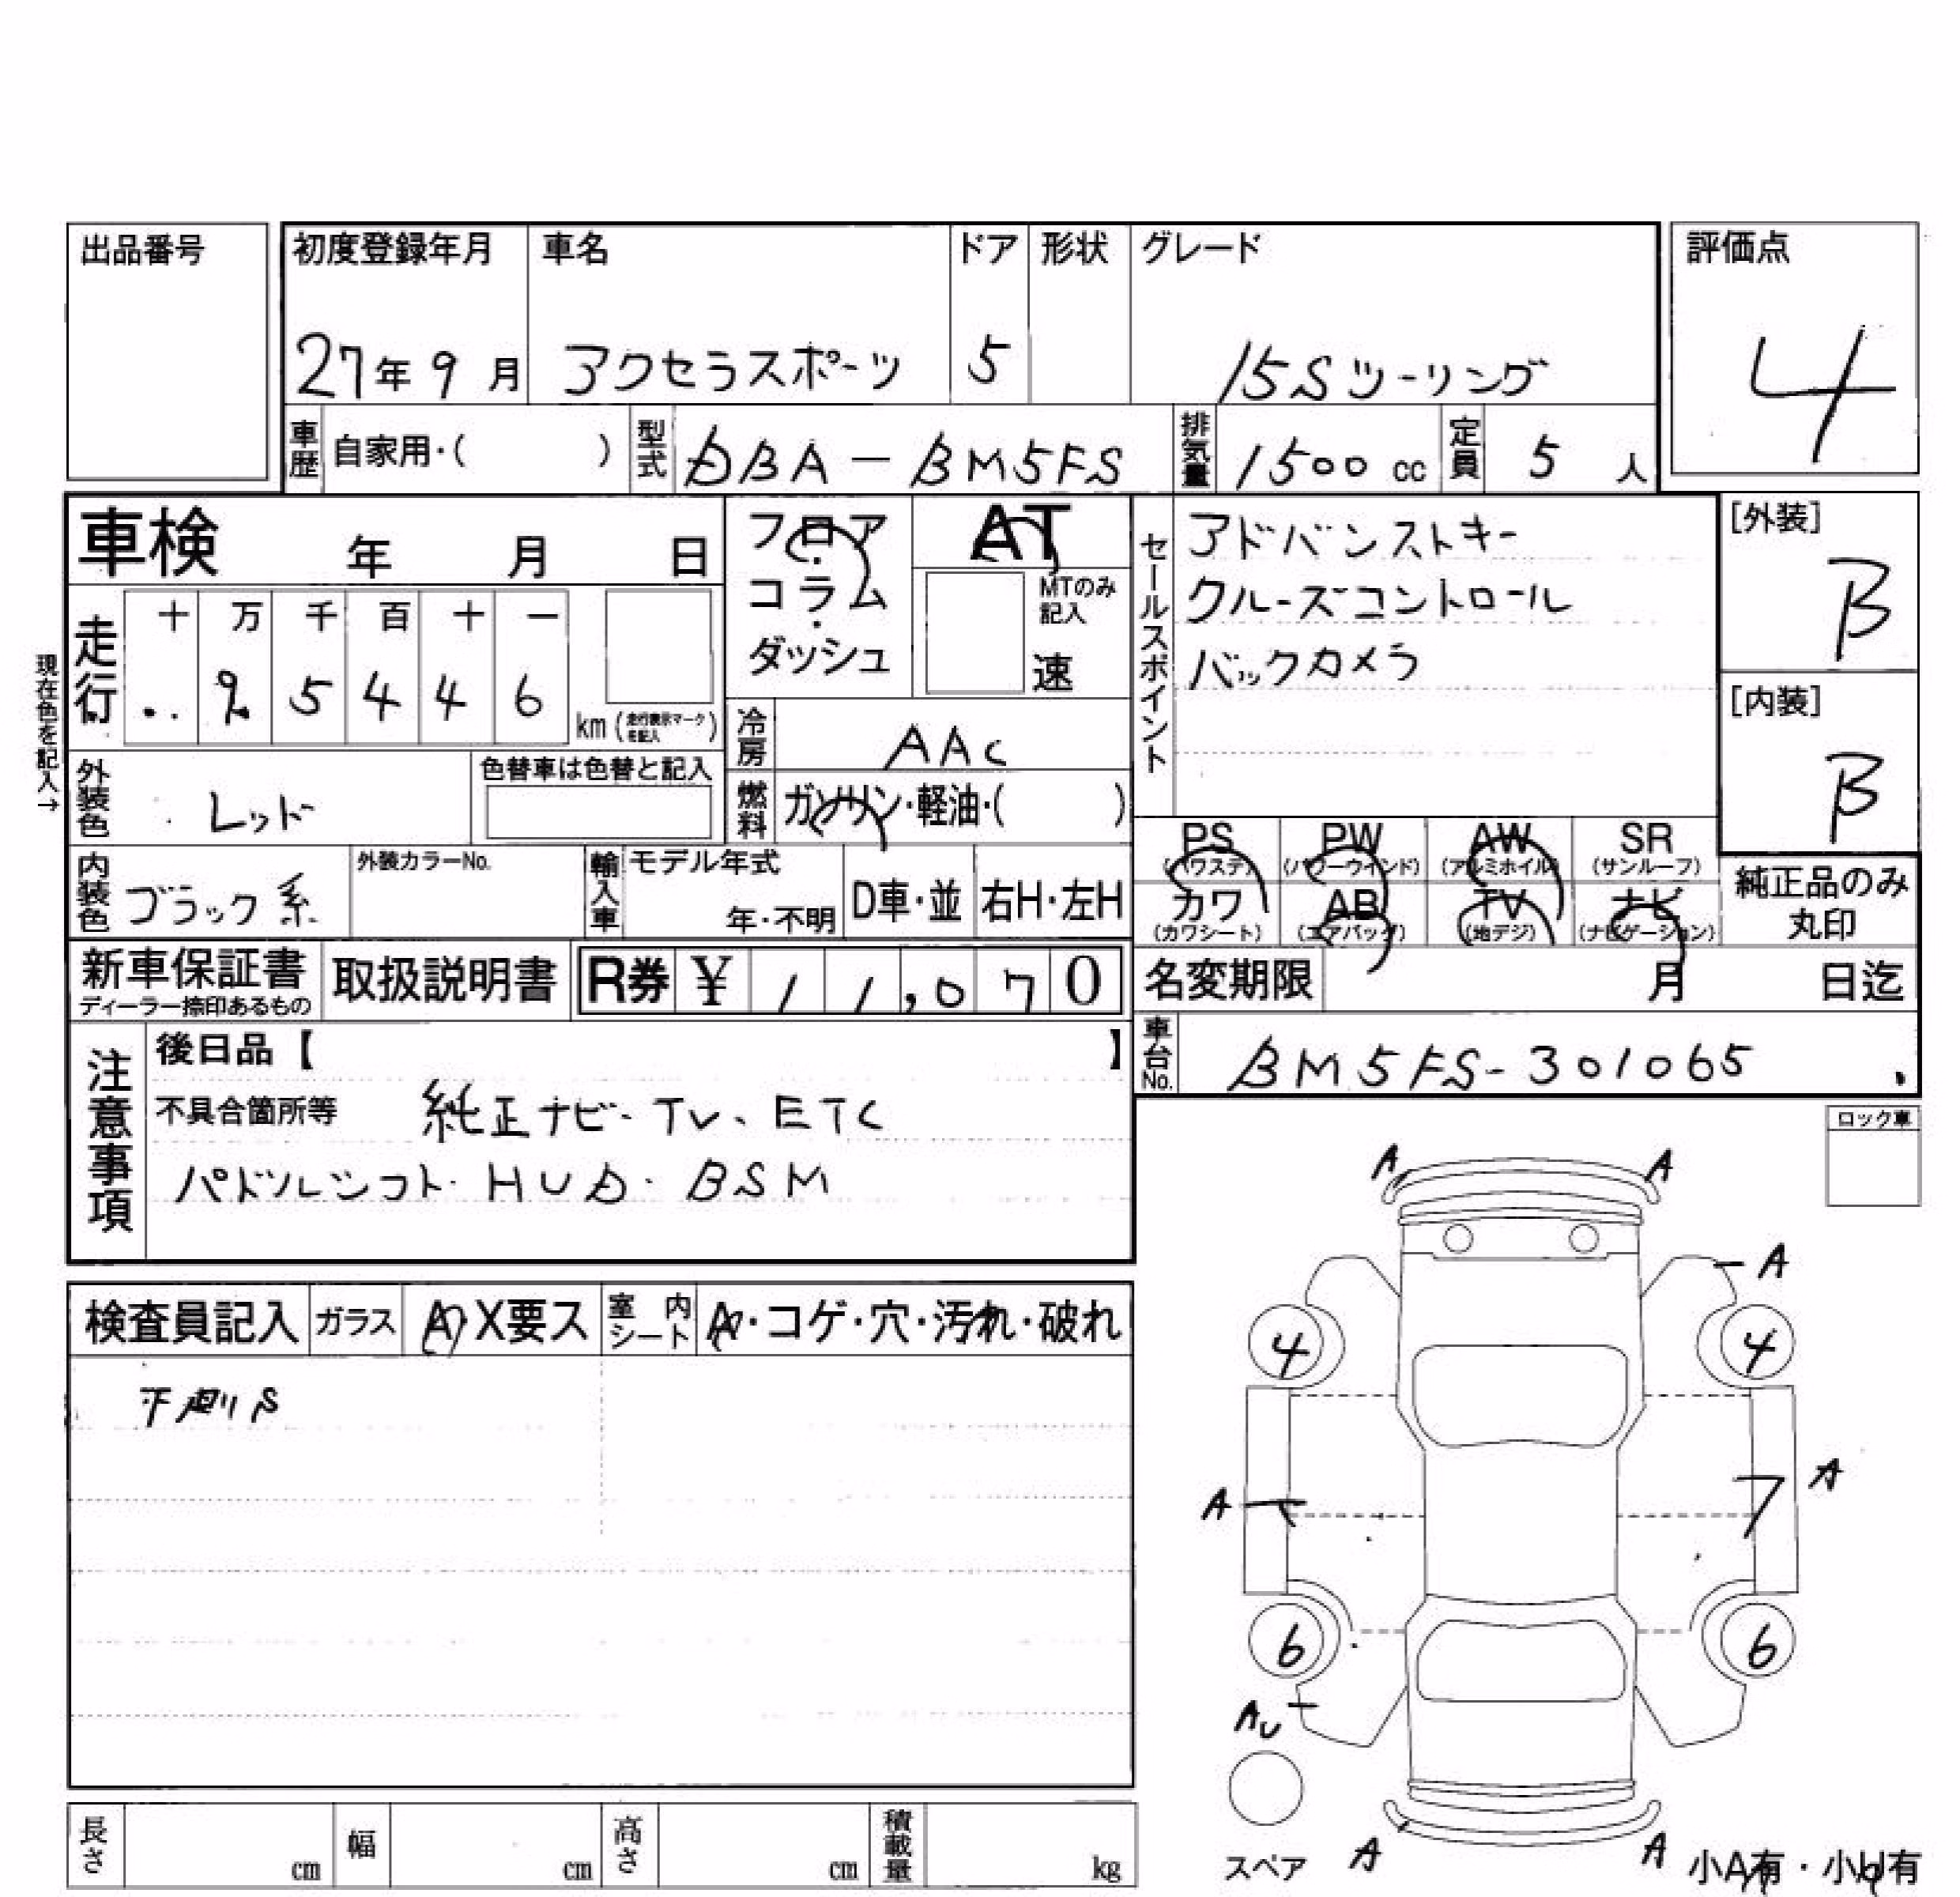 出品番号
初度登録年月 車名 ドア 形状 グレード 評価点
27年9月 アクセラスポーツ 5 15Sツーリング 4
車歴 自家用・( ) 型式 DBA-BM5FS 排気量 1500 cc 定員 5 人
車検 年 月 日
フロア・コラム・ダッシュ
AT
MTのみ記入
速
セールスポイント
アドバンストキー
クルーズコントロール
バックカメラ
[外装]
B
[内装]
B
現在色を記入→
走行 十 万 千 百 十 一
5 4 4 6
km (走行表示マークを記入)
冷房 AAC
外装色 レッド 色替車は色替と記入
燃料 ガソリン・軽油・( )
PS (パワステ) PW (パワーウインド) AW (アルミホイル) SR (サンルーフ)
カワ (カワシート) AB (エアバッグ) TV (地デジ) ナビ (ナビゲーション)
純正品のみ丸印
内装色 ブラック系 外装カラーNo. 輸入車 モデル年式 年・不明 D車・並 右H・左H
新車保証書 ディーラー捺印あるもの 取扱説明書 R券 ¥ 11,070
名変期限 月 日迄
車台No. BM5FS-301065
注意事項
後日品【 】
不具合箇所等 純正ナビ・TV、ETC
パドルシフト・HUD・BSM
ロック車
検査員記入 ガラス A・X要ス 室内シート A・コゲ・穴・汚れ・破れ
A A
A
4 4
A A
6 6
AU
スペア
A A
小A有・小U有
長さ cm 幅 cm 高さ cm 積載量 kg